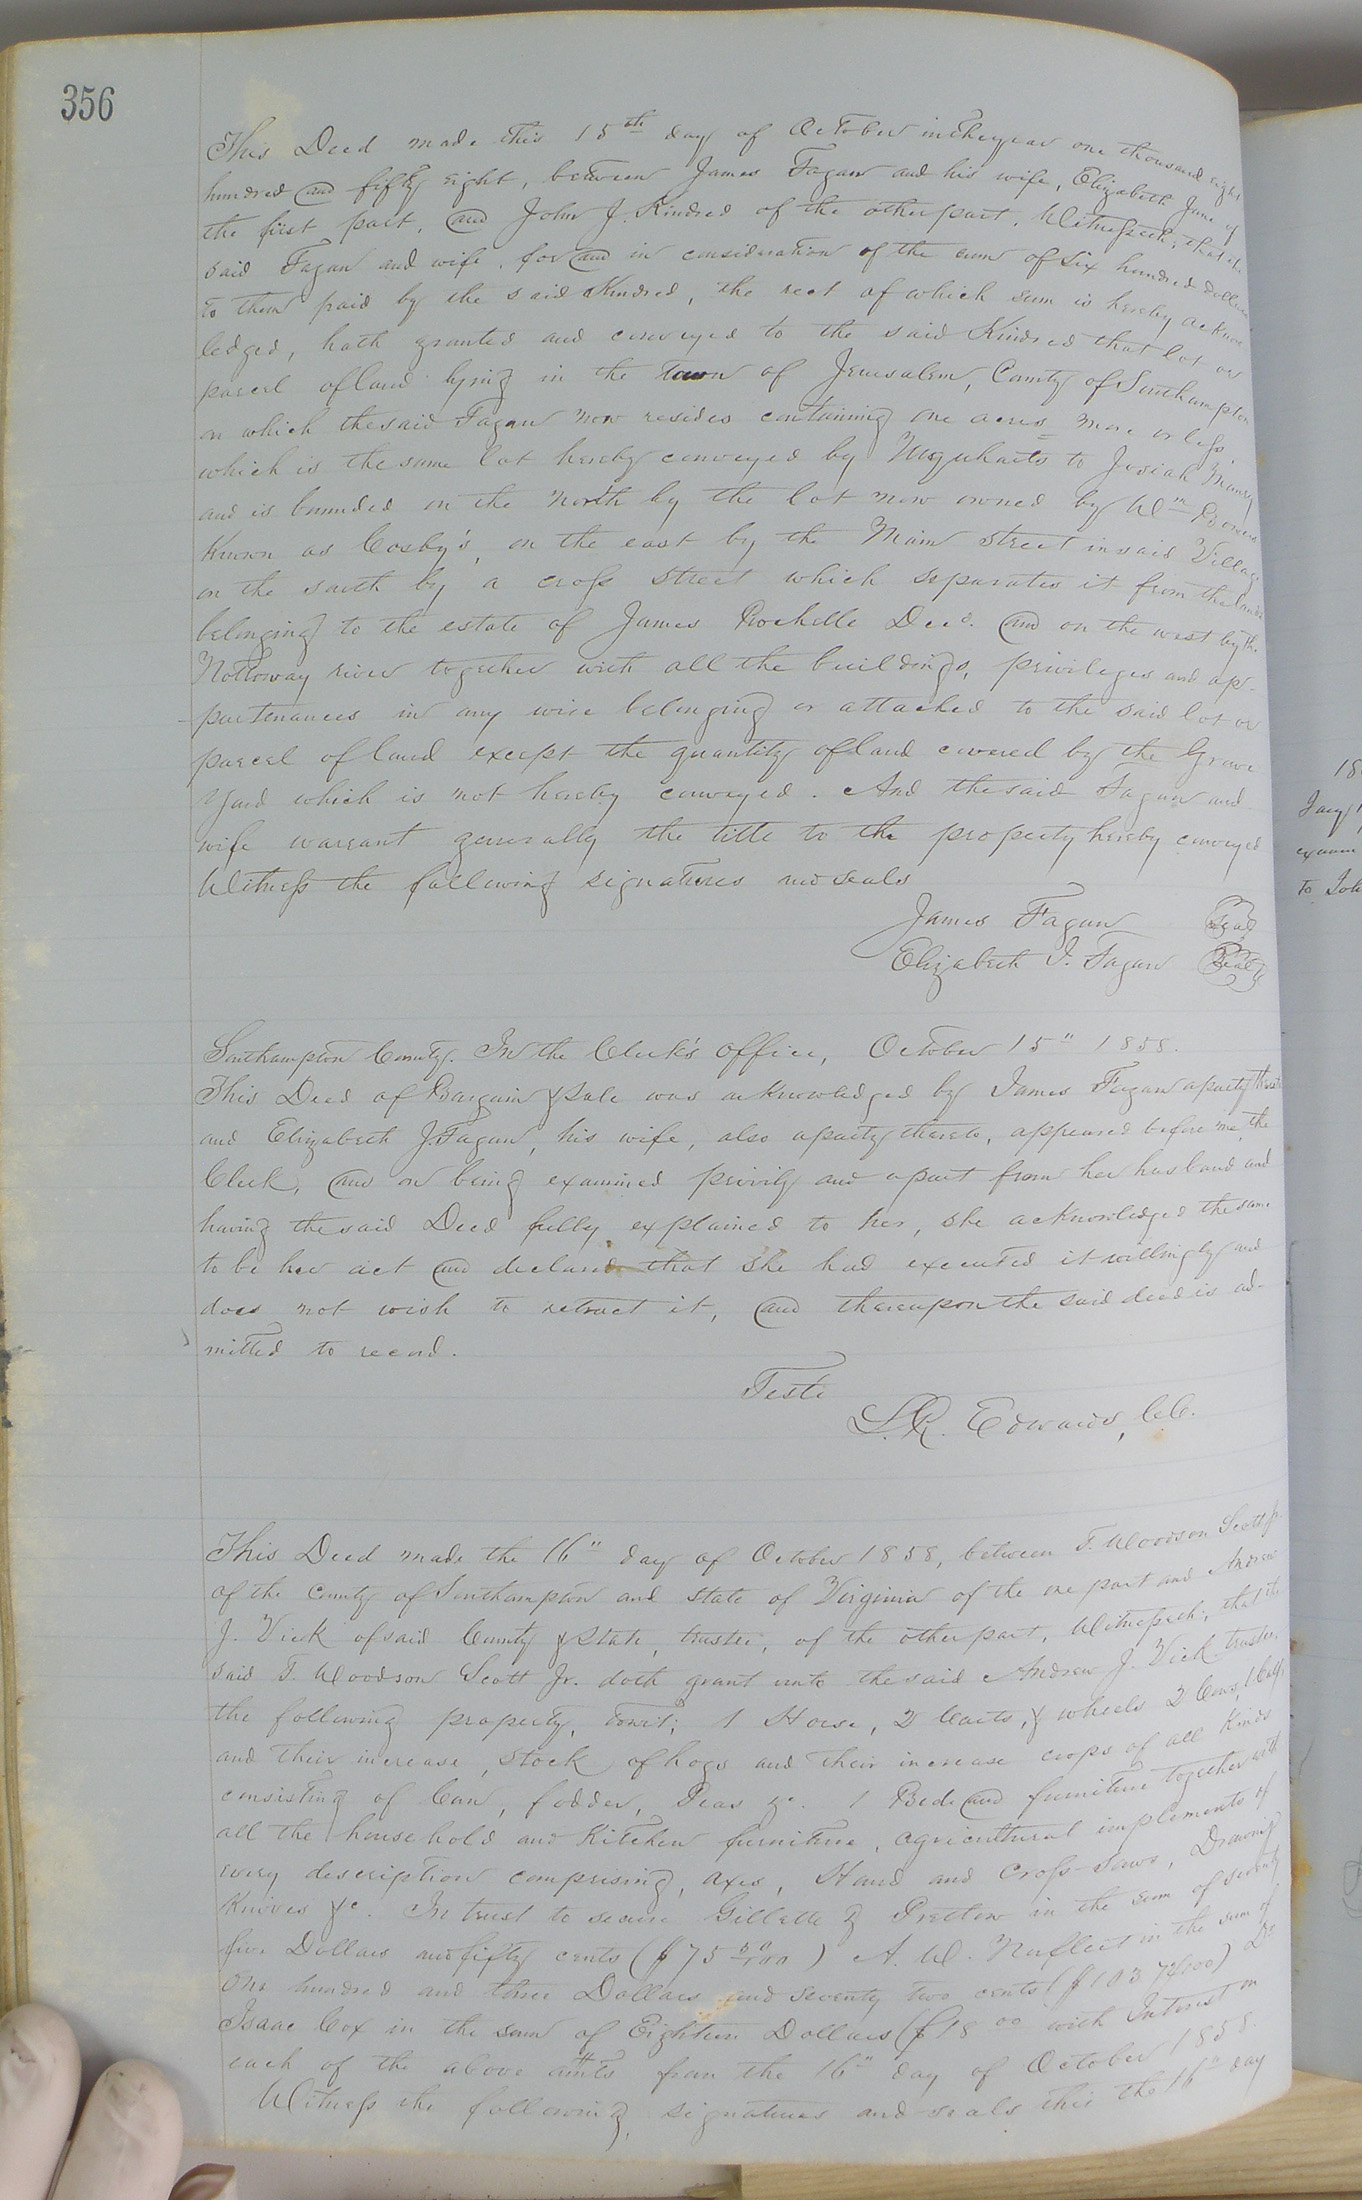 356
This Deed made this 15th day of October in the year one thousand eight
hundred and fifty eight, between James Fagan and his wife, Elizabeth Jane of
the first part, and John J. Kindred of the other part, Witnesseth; that the
said Fagan and wife, for and in consideration of the sum of six hundred dollars
to them paid by the said Kindred, the rect of which sum is hereby acknow
ledged, hath granted and conveyed to the said Kindred that lot or
parcel of land lying in the town of Jerusalem, County of Southampton
on which the said Fagan now resides containing one acres more or less,
which is the same lot hereby conveyed by to Josiah
and is bounded on the North by the lot now owned by Wm
Known as Cosby's, on the east by the Main Street in said Village
on the south by a cross street which separates it from the lands
belonging to the estate of James Rochelle Decd. and on the west by the
Nottoway river together with all the buildings, privileges and ap-
purtenances in any wise belonging or attached to the said lot or
parcel of land except the quantity of land covered by the Grave
Yard which is not hereby conveyed. And the said Fagan and
wife warrant generally the title to the property hereby conveyed
Witness the following signatures and seals
James Fagan Seal
Elizabeth J. Fagan Seal
Southampton County. In the Clerk's office, October 15" 1858.
This Deed of Bargain & Sale was acknowledged by James Fagan a party thereto
and Elizabeth J. Fagan, his wife, also a party thereto, appeared before me, the
Clerk, and on being examined privily and apart from her husband and
having the said Deed fully explained to her, she acknowledged the same
to be her act and declared that she had executed it willingly and
does not wish to retract it, and thereupon the said deed is ad-
mitted to record.
Teste
L.R. Edwards, C.C.
This Deed made the 16" day of October 1858, between T. Woodson Scott Jr.
of the County of Southampton and state of Virginia of the one part and Andrew
J. Vick of said County & State, trustee, of the other part, Witnesseth; that the
said T. Woodson Scott Jr. doth grant unto the said Andrew J. Vick trustee,
the following property, towit; 1 Horse, 2 Carts, & wheels 2 Cows, 1 Calf
and their increase, stock of hogs and their increase crops of all Kinds
consisting of Corn, fodder, Peas &c. 1 Bed and furniture together with
all the household and Kitchen furniture, agricultural implements of
every description comprising, axes, Hand and Cross-Saws, Drawing
Knives &c. In trust to secure Gillette & Pretlow in the sum of seventy
five Dollars and fifty cents ($75 50/100) A. W. Norfleet in the sum of
One hundred and three Dollars and seventy two cents ($103 72/100) Dr
Isaac Cox in the sum of Eighteen Dollars ($18 00 with Interest on
each of the above amts from the 16" day of October 1858.
Witness the following, signatures and seals this the 16" day
18
exam
to Joh